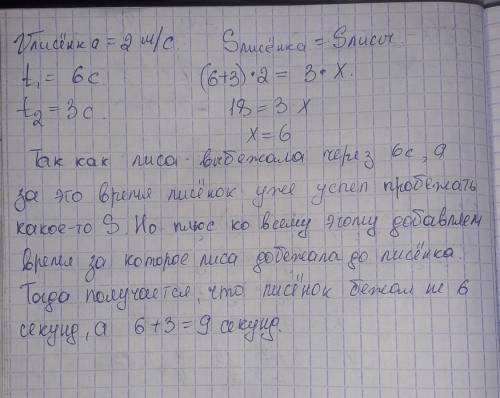 Vлисёнка = 2 м/с. Sлисёнка = Sлисы.
t₁ = 6с (6+3)·2 = 3·x.
t₂ = 3с. 18 = 3x
x = 6
Так как лиса выбежала через 6с, а
за это время лисёнок уже успел пробежать
какое-то S. Но плюс ко всему этому добавляем
время за которое лиса добежала до лисёнка.
Тогда получается, что лисёнок бежал не 6
секунд, а 6+3=9 секунд.